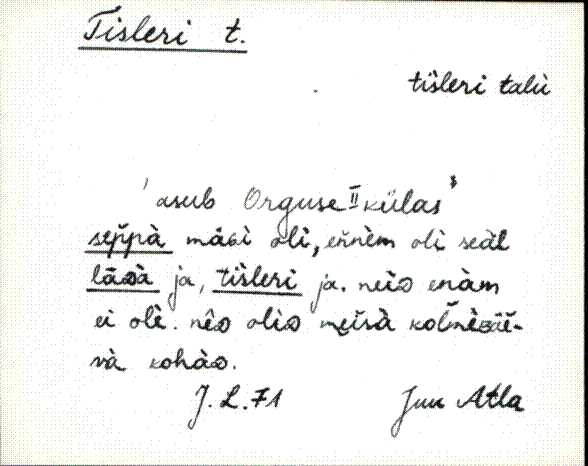 Tisleri t.
tìsleri talù
'asub Orguse II külas'
sep̆pà mäGì oli, en̆nèm oli seàl
lāDà ja, tìsleri ja. neiD enàm
ei olè. nêD oliD meĭsà kol̆mèBäĕ-
và kohàD.
J. L. 71 Juu Atla